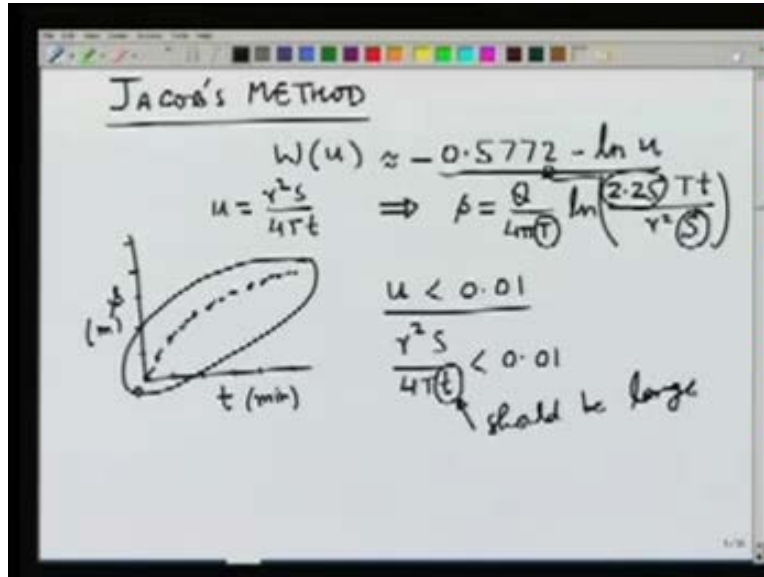 JACOB'S METHOD
W(u) ≈ - 0.5772 - ln u
u = r²S / 4Tt ⟹ s = Q / 4πT ln(2.25 Tt / r² S)
u < 0.01
s
(m)
r² S / 4Tt < 0.01
t (min)
should be large